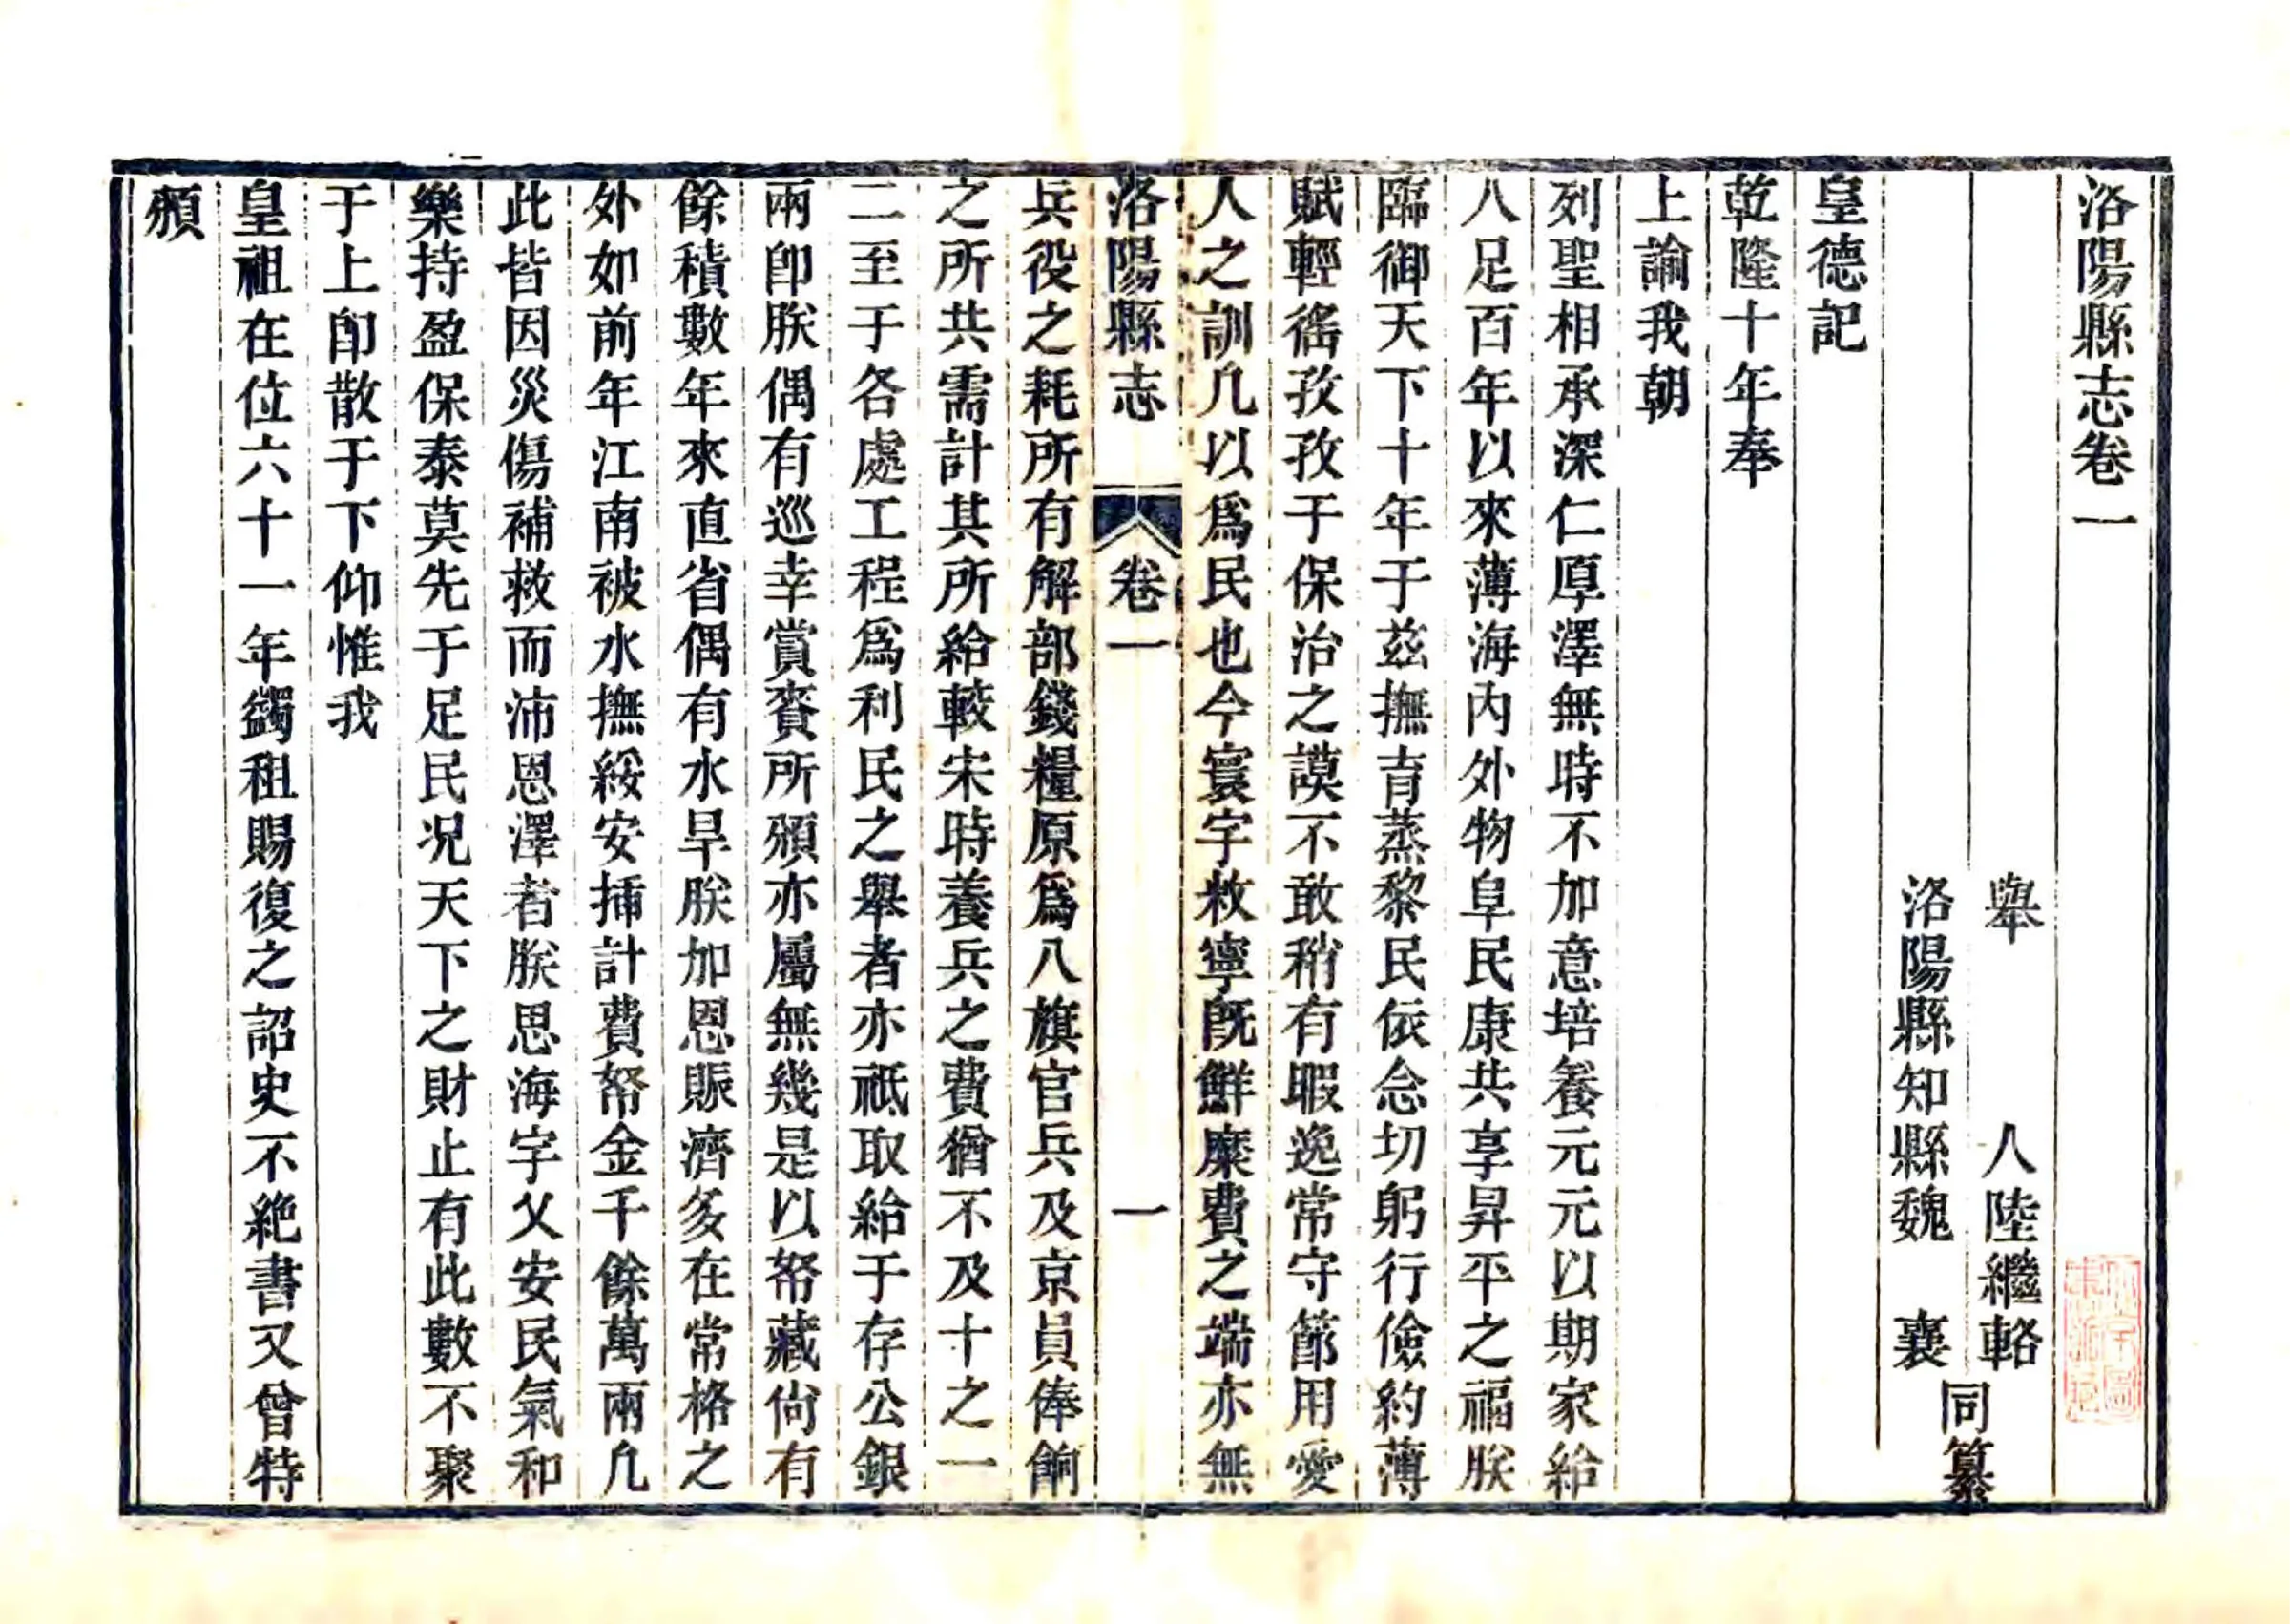 洛陽縣志卷一
舉人陸繼輅
洛陽縣知縣魏襄
同纂
皇德記
乾隆十年奉
上諭我朝
列聖相承深仁厚澤無時不加意培養元元以期家給
人足百年以來薄海內外物阜民康共享昇平之福朕
臨御天下十年于茲撫育蒸黎民依念切躬行儉約薄
賦輕徭孜孜于保治之謨不敢稍有暇逸常守節用愛
人之訓凡以爲民也今寰宇敉寧旣鮮糜費之端亦無
洛陽縣志 卷一 一
兵役之耗所有解部錢糧原爲八旗官兵及京員俸餉
之所共需計其所給較宋時養兵之費猶不及十之一
二至于各處工程爲利民之舉者亦祗取給于存公銀
兩卽朕偶有巡幸賞賚所頒亦屬無幾是以帑藏尙有
餘積數年來直省偶有水旱朕加恩賑濟多在常格之
外如前年江南被水撫綏安揷計費帑金千餘萬兩凡
此皆因災傷補救而沛恩澤者朕思海宇乂安民氣和
樂持盈保泰莫先于足民况天下之財止有此數不聚
于上卽散于下仰惟我
皇祖在位六十一年蠲租賜復之詔史不絶書又曾特
頒